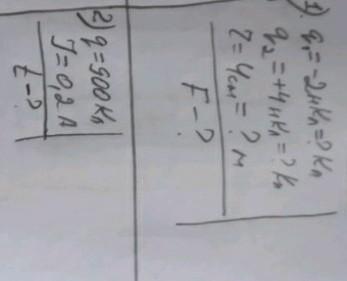 1. q₁ = -2нКл = ? Кл
q₂ = +4нКл = ? Кл
r = 4см = ? м
F - ?
2) q = 900 Кл
J = 0,2 А
t - ?